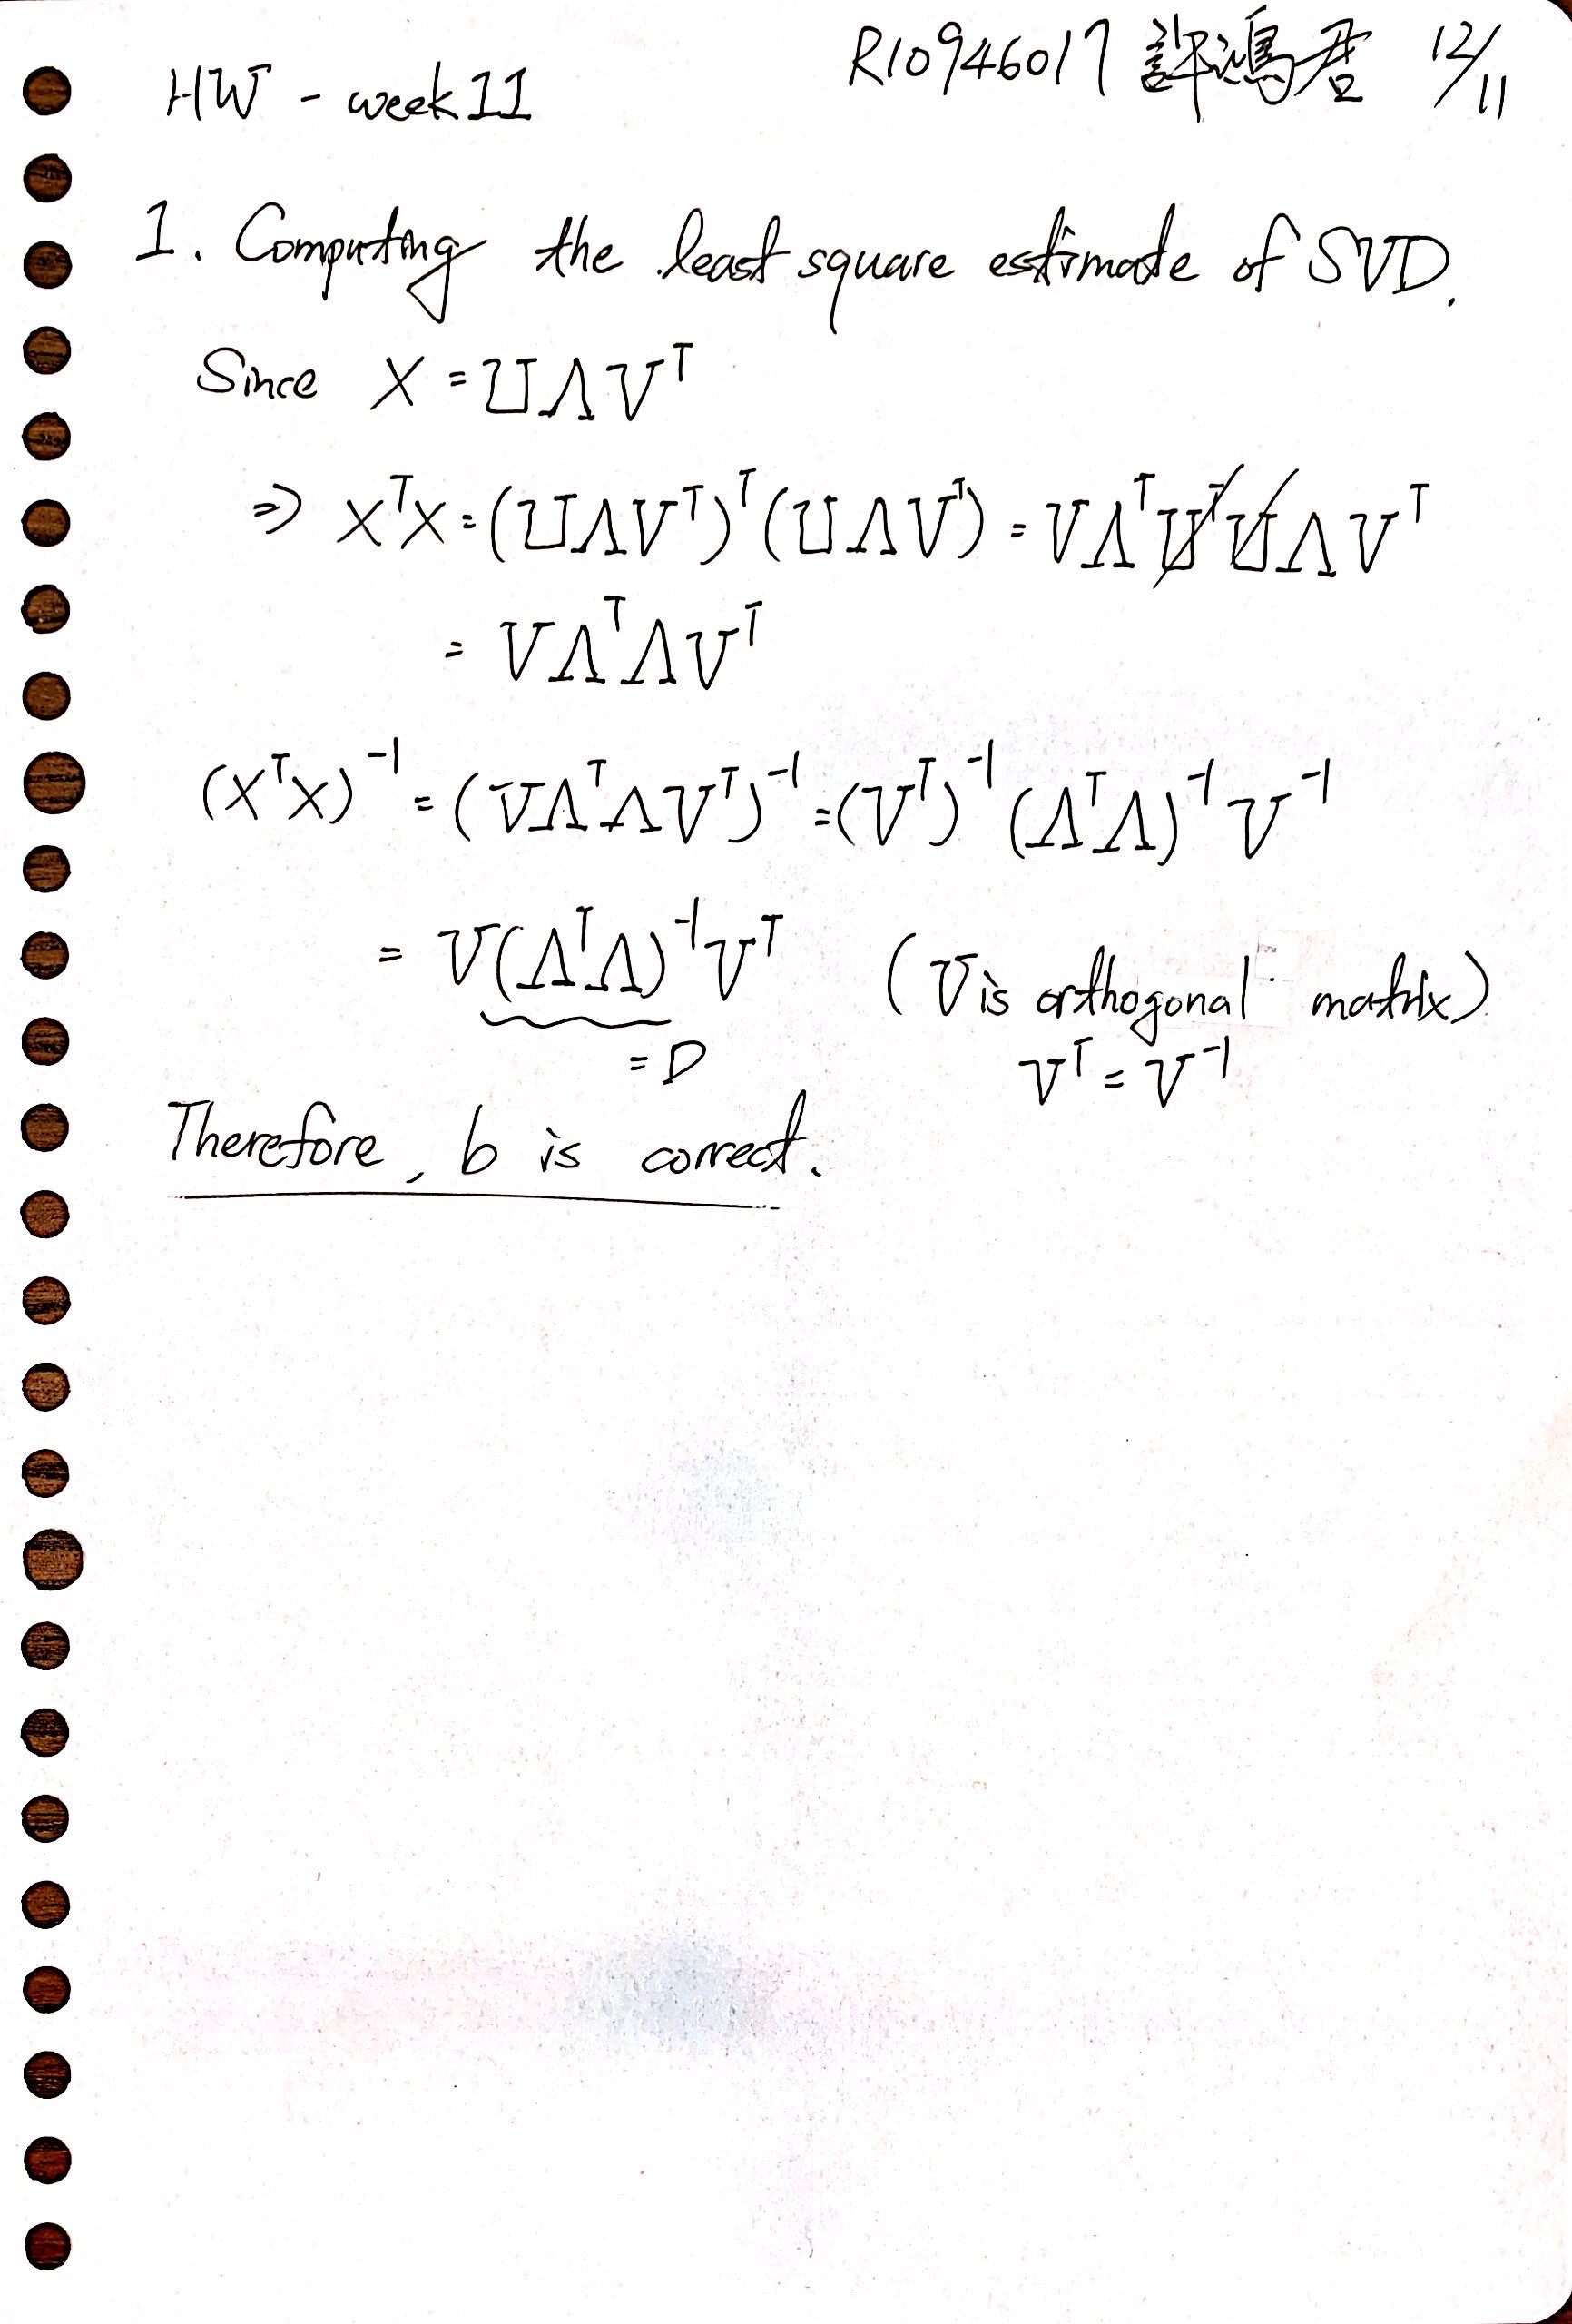 HW - week 11
R10946017 許鴻君 12/11
1. Computing the least square estimate of SVD.
Since X = UΛVᵀ
⇒ XᵀX = (UΛVᵀ)ᵀ(UΛVᵀ) = VΛᵀUᵀUΛVᵀ
= VΛᵀΛVᵀ
(XᵀX)⁻¹ = (VΛᵀΛVᵀ)⁻¹ = (Vᵀ)⁻¹(ΛᵀΛ)⁻¹V⁻¹
= V(ΛᵀΛ)⁻¹Vᵀ (V is orthogonal matrix)
= D Vᵀ = V⁻¹
Therefore, b is correct.